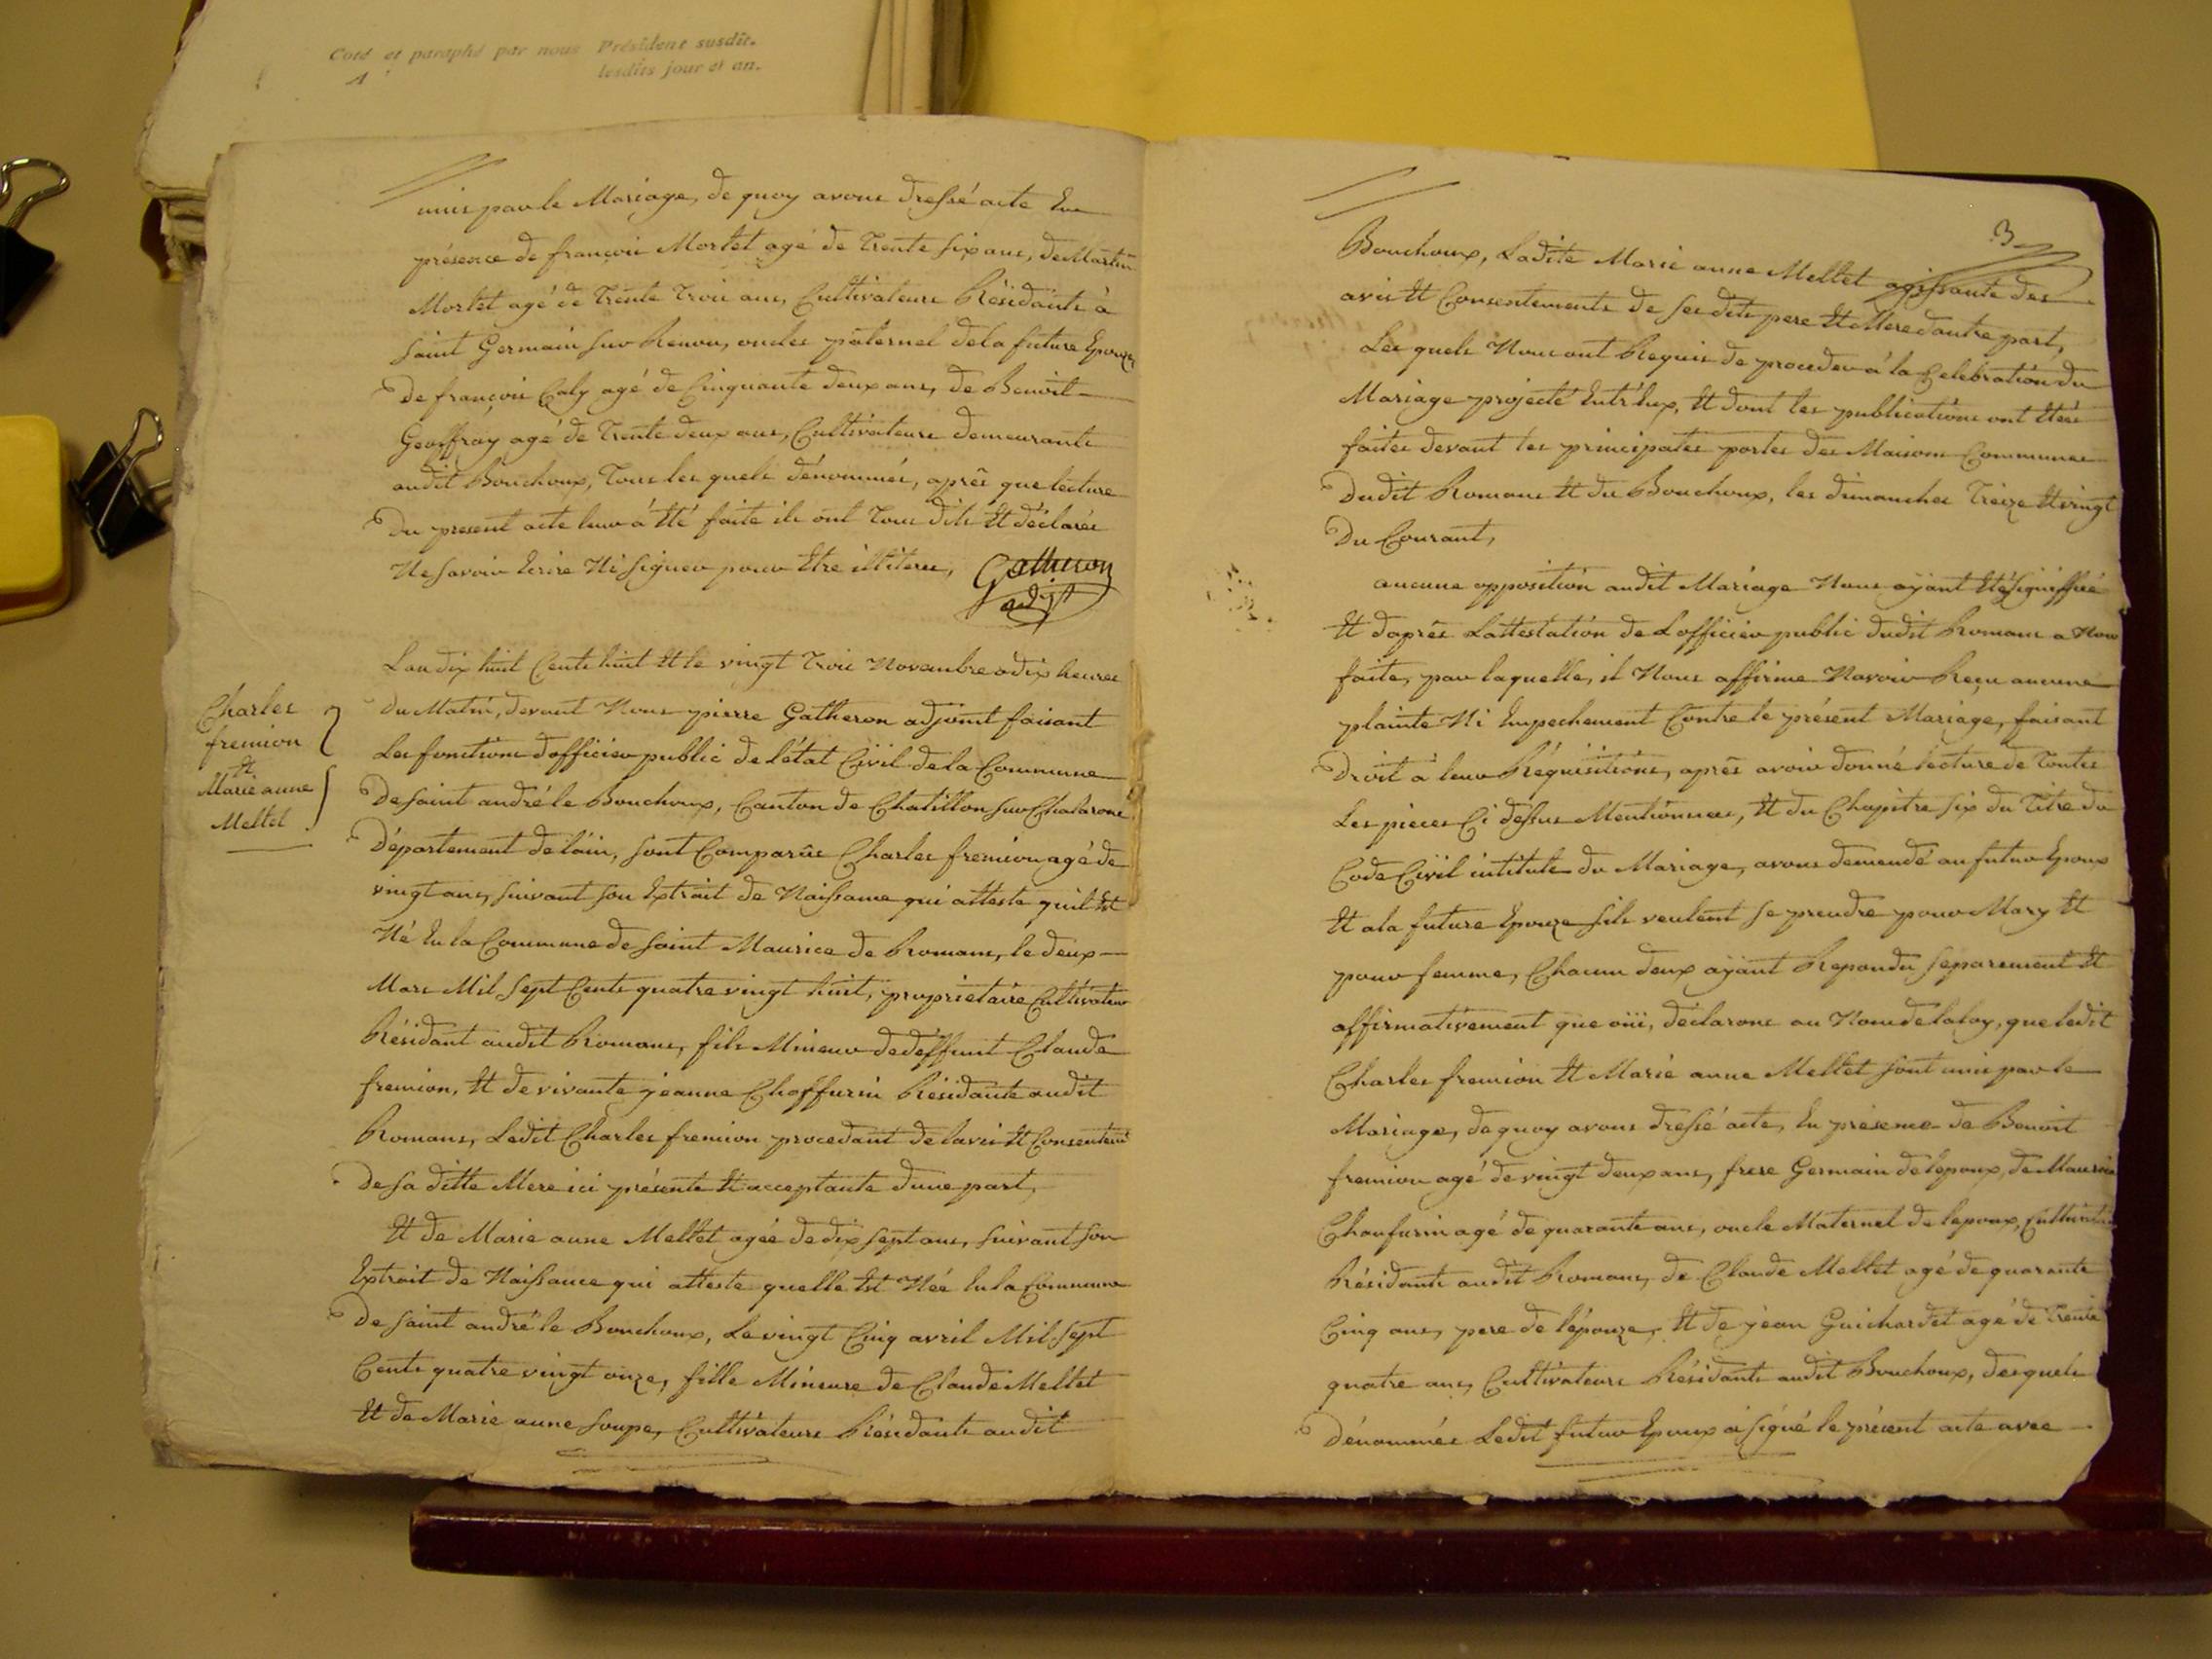 Coté et paraphé par nous Président susdit.
A lesdits jour et an.
unis par le Mariage, de quoy avons dressé acte En
présence de françois Mortet agé de Trente six ans, de Martin
Mortet agé de Trente Trois ans, Cultivateurs Résidants à
saint Germain sur Renon, oncles paternel dela future Epouze,
De françois Caly agé de Cinquante deux ans, de Benoit
Geoffray agé de Trente deux ans, Cultivateurs demeurants
audit Bouchoux, Tous les quels dénommés, après que lecture
Du present acte leur à Eté faite ils ont Tous dits Et déclarés
Ne savoir Ecrire Ni signer pour Etre illiterés, Gatheron
adjt
Charles
fremion
Et
Marie anne
Mellet
Lan dix huit Cents huit Et le vingt Trois Novembre a dix heures
Du Matin, devant Nous pierre Gatheron adjoint faisant
Les fonctions dofficier public de létat Civil de la Commune
De saint andré le Bouchoux, Canton de Chatillon sur Chalarone
Département de lain, sont Comparûs Charles fremion agé de
vingt ans, suivant son Extrait de Naissance qui atteste quil Est
Né En la Commune de saint Maurice de Romans, le deux
Mars Mil Sept Cents quatre vingt huit, proprietaire Cultivateur
Résidant audit Romans, fils Mineur de deffunt Claude
fremion, Et de vivante jeanne Choffurin Résidante audit
Romans, Ledit Charles fremion procedant de lavis Et Consentemt
De sa ditte Mere ici présente Et acceptante dune part,
Et de Marie anne Mellet agée de dix sept ans, suivant son
Extrait de Naissance qui atteste quelle Est Née En la Commune
De saint andré le Bouchoux, Le vingt Cinq avril Mil Sept
Cents quatre vingt onze, fille Mineure de Claude Mellet
Et de Marie anne soupe, Cultivateurs Résidants audit
3
Bouchoux, Ladite Marie anne Mellet agissante des
avis Et Consentements de ses dits pere Et Mere dautre part,
Les quels Nous ont Requis de proceder à la Celebration du
Mariage projecté Entr'Eux, Et dont les publications ont Etées
faites devant les principales portes des Maisons Communes
Dudit Romans Et du Bouchoux, les dimanches Treize Et vingt
Du Courant,
aucune opposition audit Mariage Nous ayant Eté signiffiée
Et daprès Lattestation de Lofficier public dudit Romans a Nous
faite, par laquelle, il Nous affirme Navoir Reçu aucune
plainte Ni Empechement Contre le présent Mariage, faisant
Droit à leur Réquisitions, après avoir donné lecture de Toutes
Les pieces Ci dessus Mentionnées, Et du Chapitre six du Titre du
Code Civil intitulé du Mariage, avons demendé au futur Epoux
Et ala future Epouze sils veulent se prendre pour Mary Et
pour femme, Chacun deux ayant Repondu séparement Et
affirmativement que oüi, déclarons au Nom de la loy, que ledit
Charles fremion Et Marie anne Mellet sont unis par le
Mariage, de quoy avons dressé acte, En présence de Benoit
fremion agé de vingt deux ans, frere Germain de lepoux, de Maurice
Chaufurin agé de quarante ans, oncle Maternel de lepoux, Cultivateurs
Résidants audit Romans, de Claude Mellet agé de quarante
Cinq ans, pere de l'épouze, Et de jean Guichardet agé de Trente
quatre ans, Cultivateurs Résidants audit Bouchoux, desquels
Dénommés Ledit futur Epoux a signé le présent acte avec